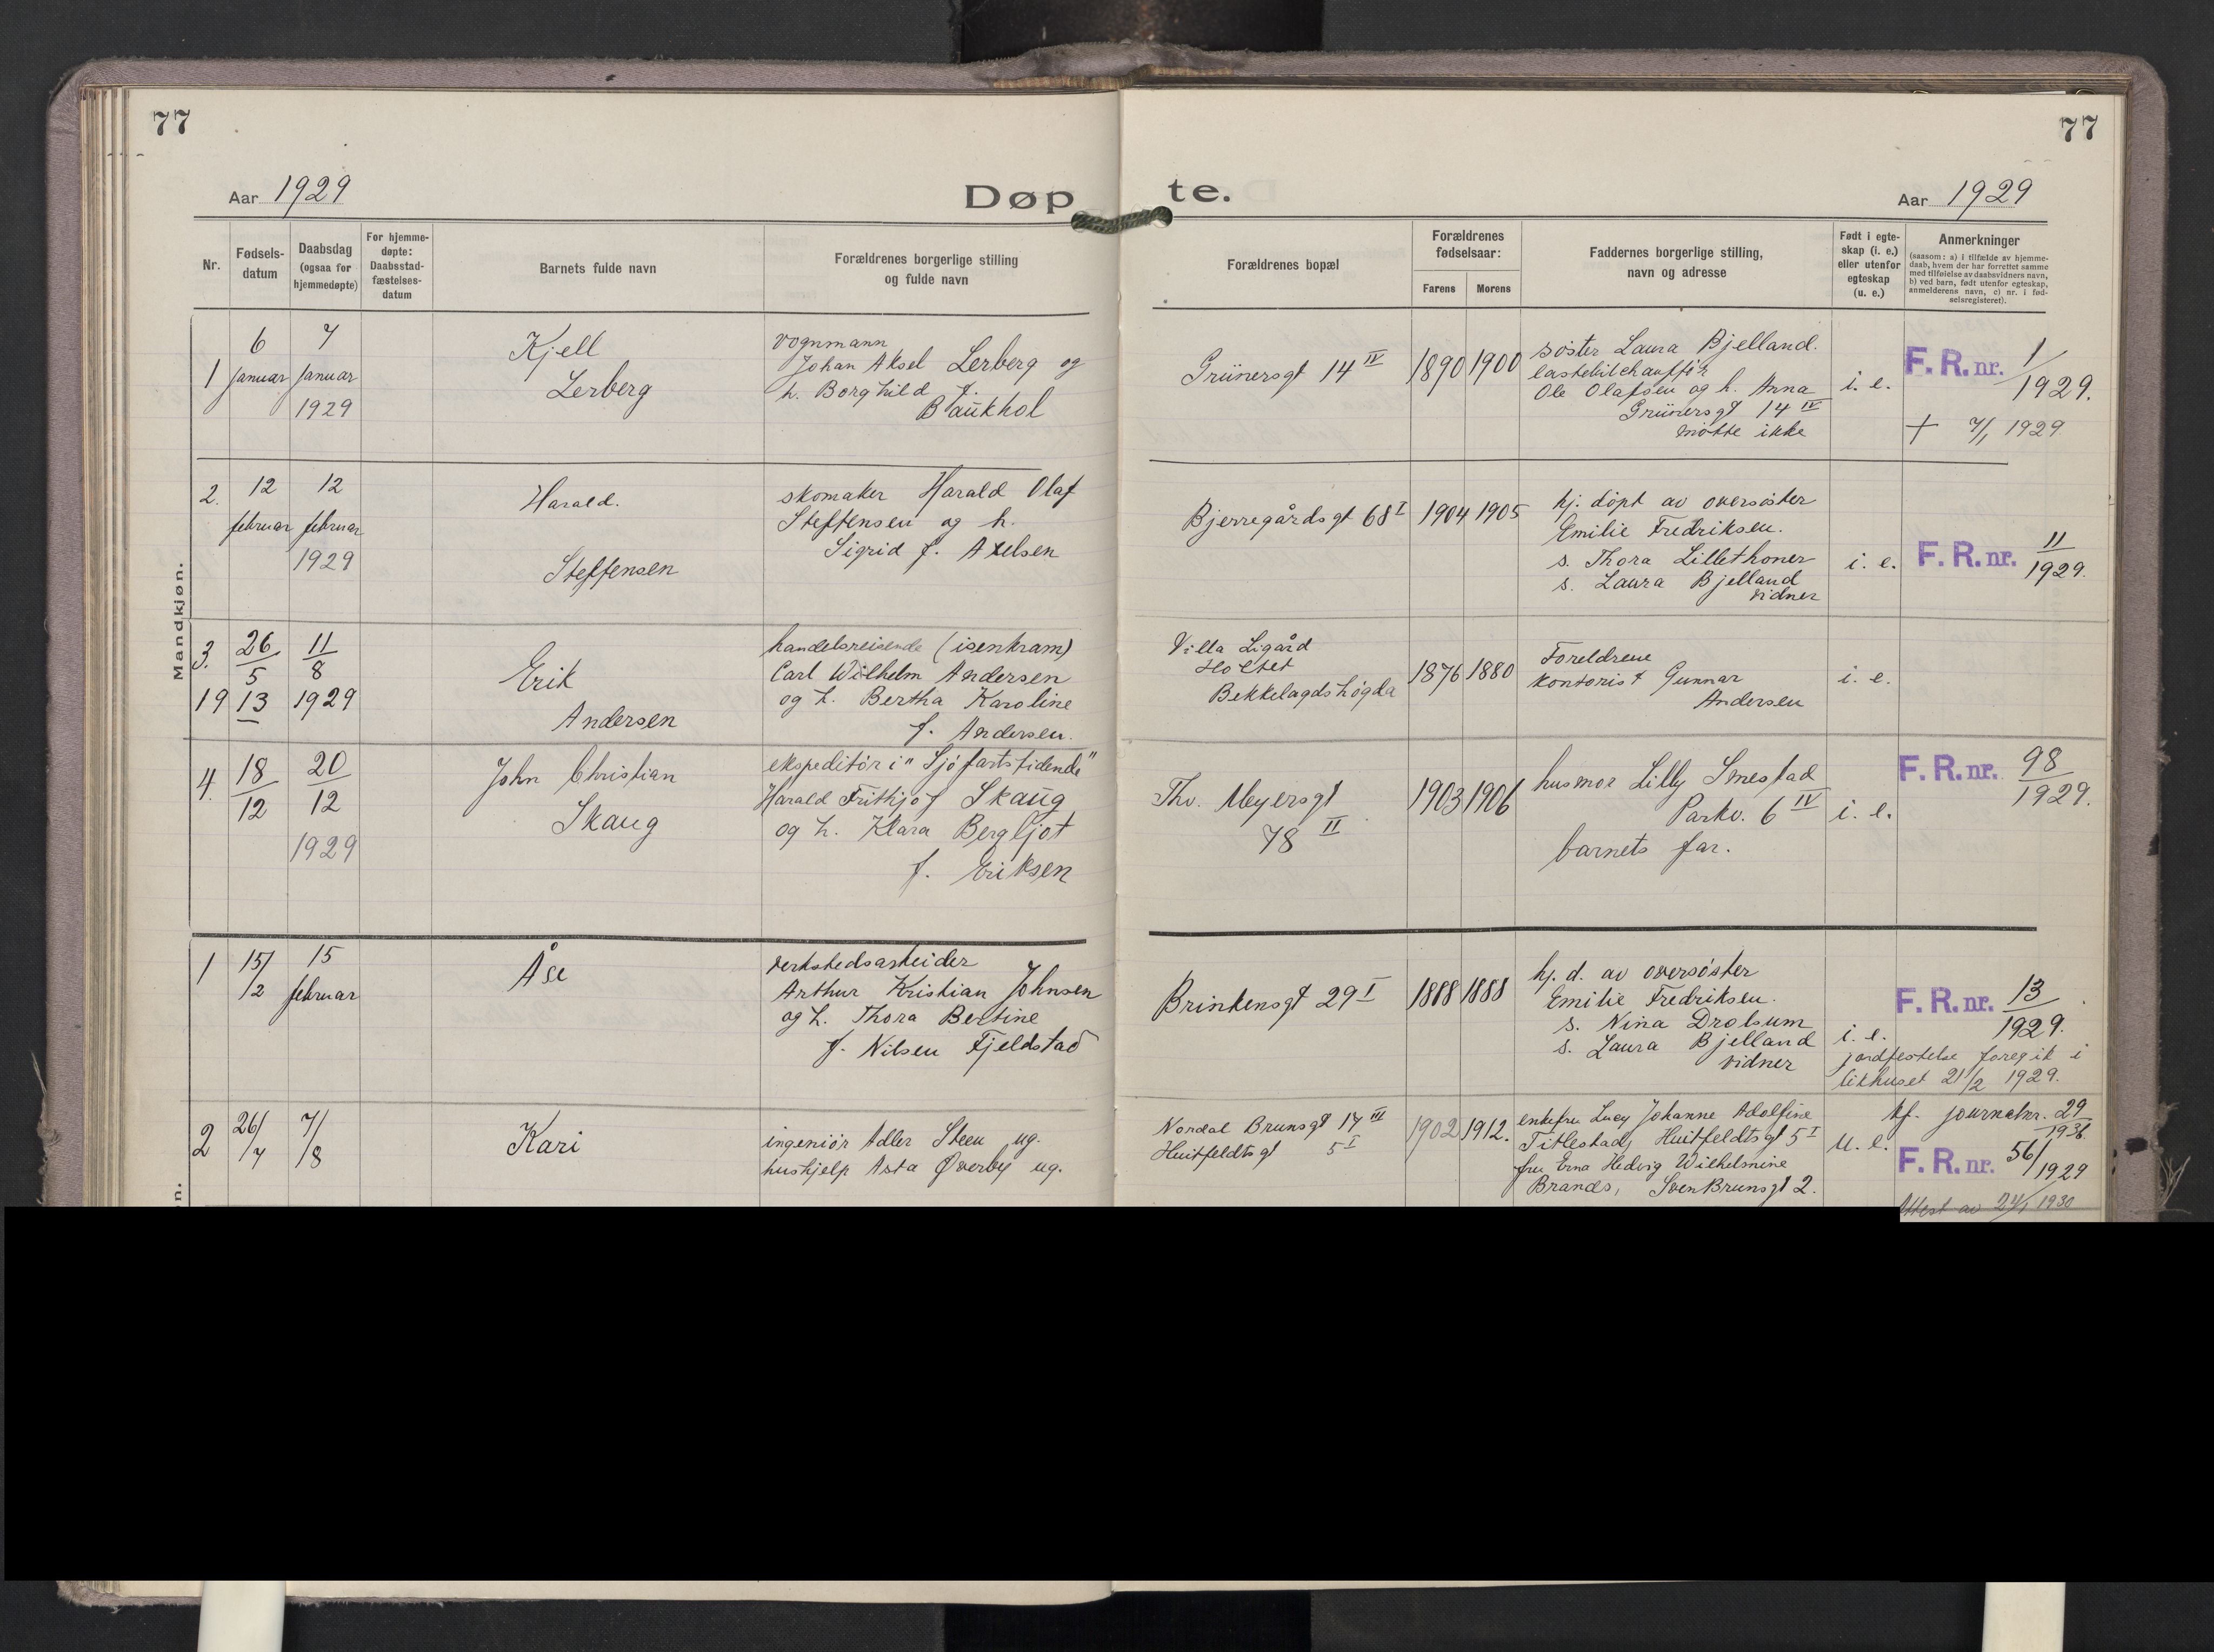 77
77
Aar 1929
Døp
te.
Aar 1929
Nr.
Fødsels-
datum
Daabsdag
(ogsaa for
hjemmedøpte)
For hjemme-
døpte:
Daabsstad-
fæstelses-
datum
Barnets fulde navn
Forældrenes borgerlige stilling
og fulde navn
Forældrenes bopæl
Forældrenes
fødselsaar:
Farens
Morens
Faddernes borgerlige stilling,
navn og adresse
Født i egte-
skap (i. e.)
eller utenfor
egteskap
(u. e.)
Anmerkninger
(saasom: a) i tilfælde av hjemme-
daab, hvem der har forrettet samme
med tilføielse av daabsvidners navn,
b) ved barn, født utenfor egteskap,
anmelderens navn, c) nr. i fød-
selsregisteret).
Mandkjøn.
1
6
januar
7
januar
1929
Kjell
Lerberg
vognmann
Johan Aksel Lerberg og
h. Borghild f.
Baukhol
Grünersgt 14 IV
1890
1900
søster Laura Bjelland.
lastebilchauffør
Ole Olafsen og h. Anna
Grünersgt 14 IV
møtte ikke
i. e.
F. R. nr. 1/1929.
+ 7/1 1929
2.
12
februar
12
februar
1929
Harald.
Steffensen
skomaker Harald Olaf
Steffensen og h.
Sigrid f. Axelsen
Bjerregårdsgt 68 I
1904
1905
hj. døpt av oversøster
Emilie Fredriksen.
s. Thora Lillethoner
s. Laura Bjelland
vidner
i. e.
F. R. nr. 11/1929.
3.
26/5
1913
11/8
1929
Erik
Andersen
handelsreisende (isenkram)
Carl Wilhelm Andersen
og h. Bertha Karoline
f. Andersen.
Villa Ligård
Holtet
Bekkelagdshøgda
1876
1880
Foreldrene
kontorist Gunnar
Andersen
i. e.
4.
18/12
20/12
1929
John Christian
Skaug
ekspeditør i "Sjøfartstidende"
Harald Frithjof Skaug
og h. Klara Bergljot
f. Eriksen
Thv. Meyersgt
78 II
1903
1906
husmor Lilly Smestad
Parkv. 6 IV
barnets far.
i. e.
F. R. nr. 98/1929.
1
15/2
15
februar
Åse
verkstedsarbeider
Arthur Kristian Johnsen
og h. Thora Bertine
f. Nilsen Fjeldstad
Brinkensgt 29 I
1888
1888
hj. d. av oversøster
Emilie Fredriksen.
s. Nina Drolsum
s. Laura Bjelland
vidner
i. e.
F. R. nr. 13/1929.
jordfestelse foregik i
likhuset 21/2 1929.
2
26/7
7/8
Kari
ingeniør Adler Steen ug.
hushjelp Asta Øverby ug.
Nordal Brunsgt 17 III
Huitfeldtsgt 5 I
1902
1912.
enkefru Lucy Johanne Adolfine
Titlestad, Huitfeldtsgt 5 I
fru Erna Hedvig Wilhelmine
Brandt, Sven Brunsgt 2.
u. e.
kf. journalnr. 29/1936
F. R. nr. 56/1929
Attest av 24/1 1930
n.